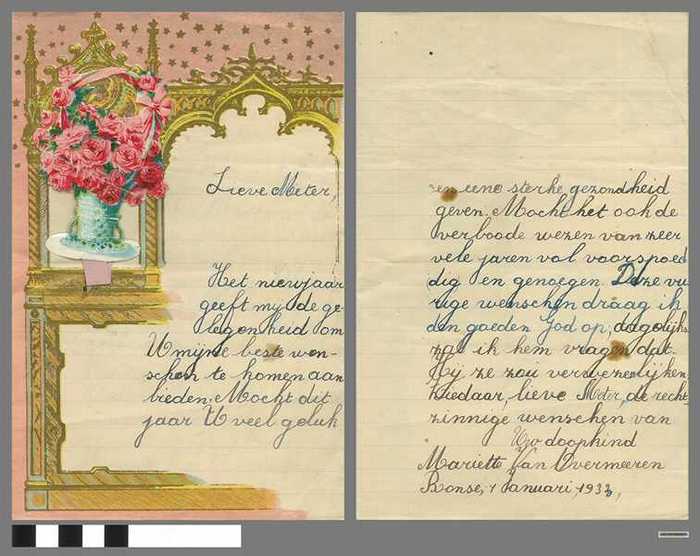 Lieve Meter,
Het nieuwjaar
geeft mij de ge-
legenheid om
U mijne beste wen-
schen te komen aan
bieden. Mocht dit
jaar U veel geluk
en eene sterke gezondheid
geven. Mocht het ook de
verboode wezen van zeer
vele jaren vol voorspoed
dig en genoegen. Deze vu
rige wenschen draag ik
den goeden God op, dagelijks
zal ik hem vragen dat
Hij ze zou verwezenlijken
Ziedaar, lieve Meter, de recht
zinnige wenschen van
Uw doopkind
Mariette Van Overmeeren
Ronse, 1 Januari, 1933,